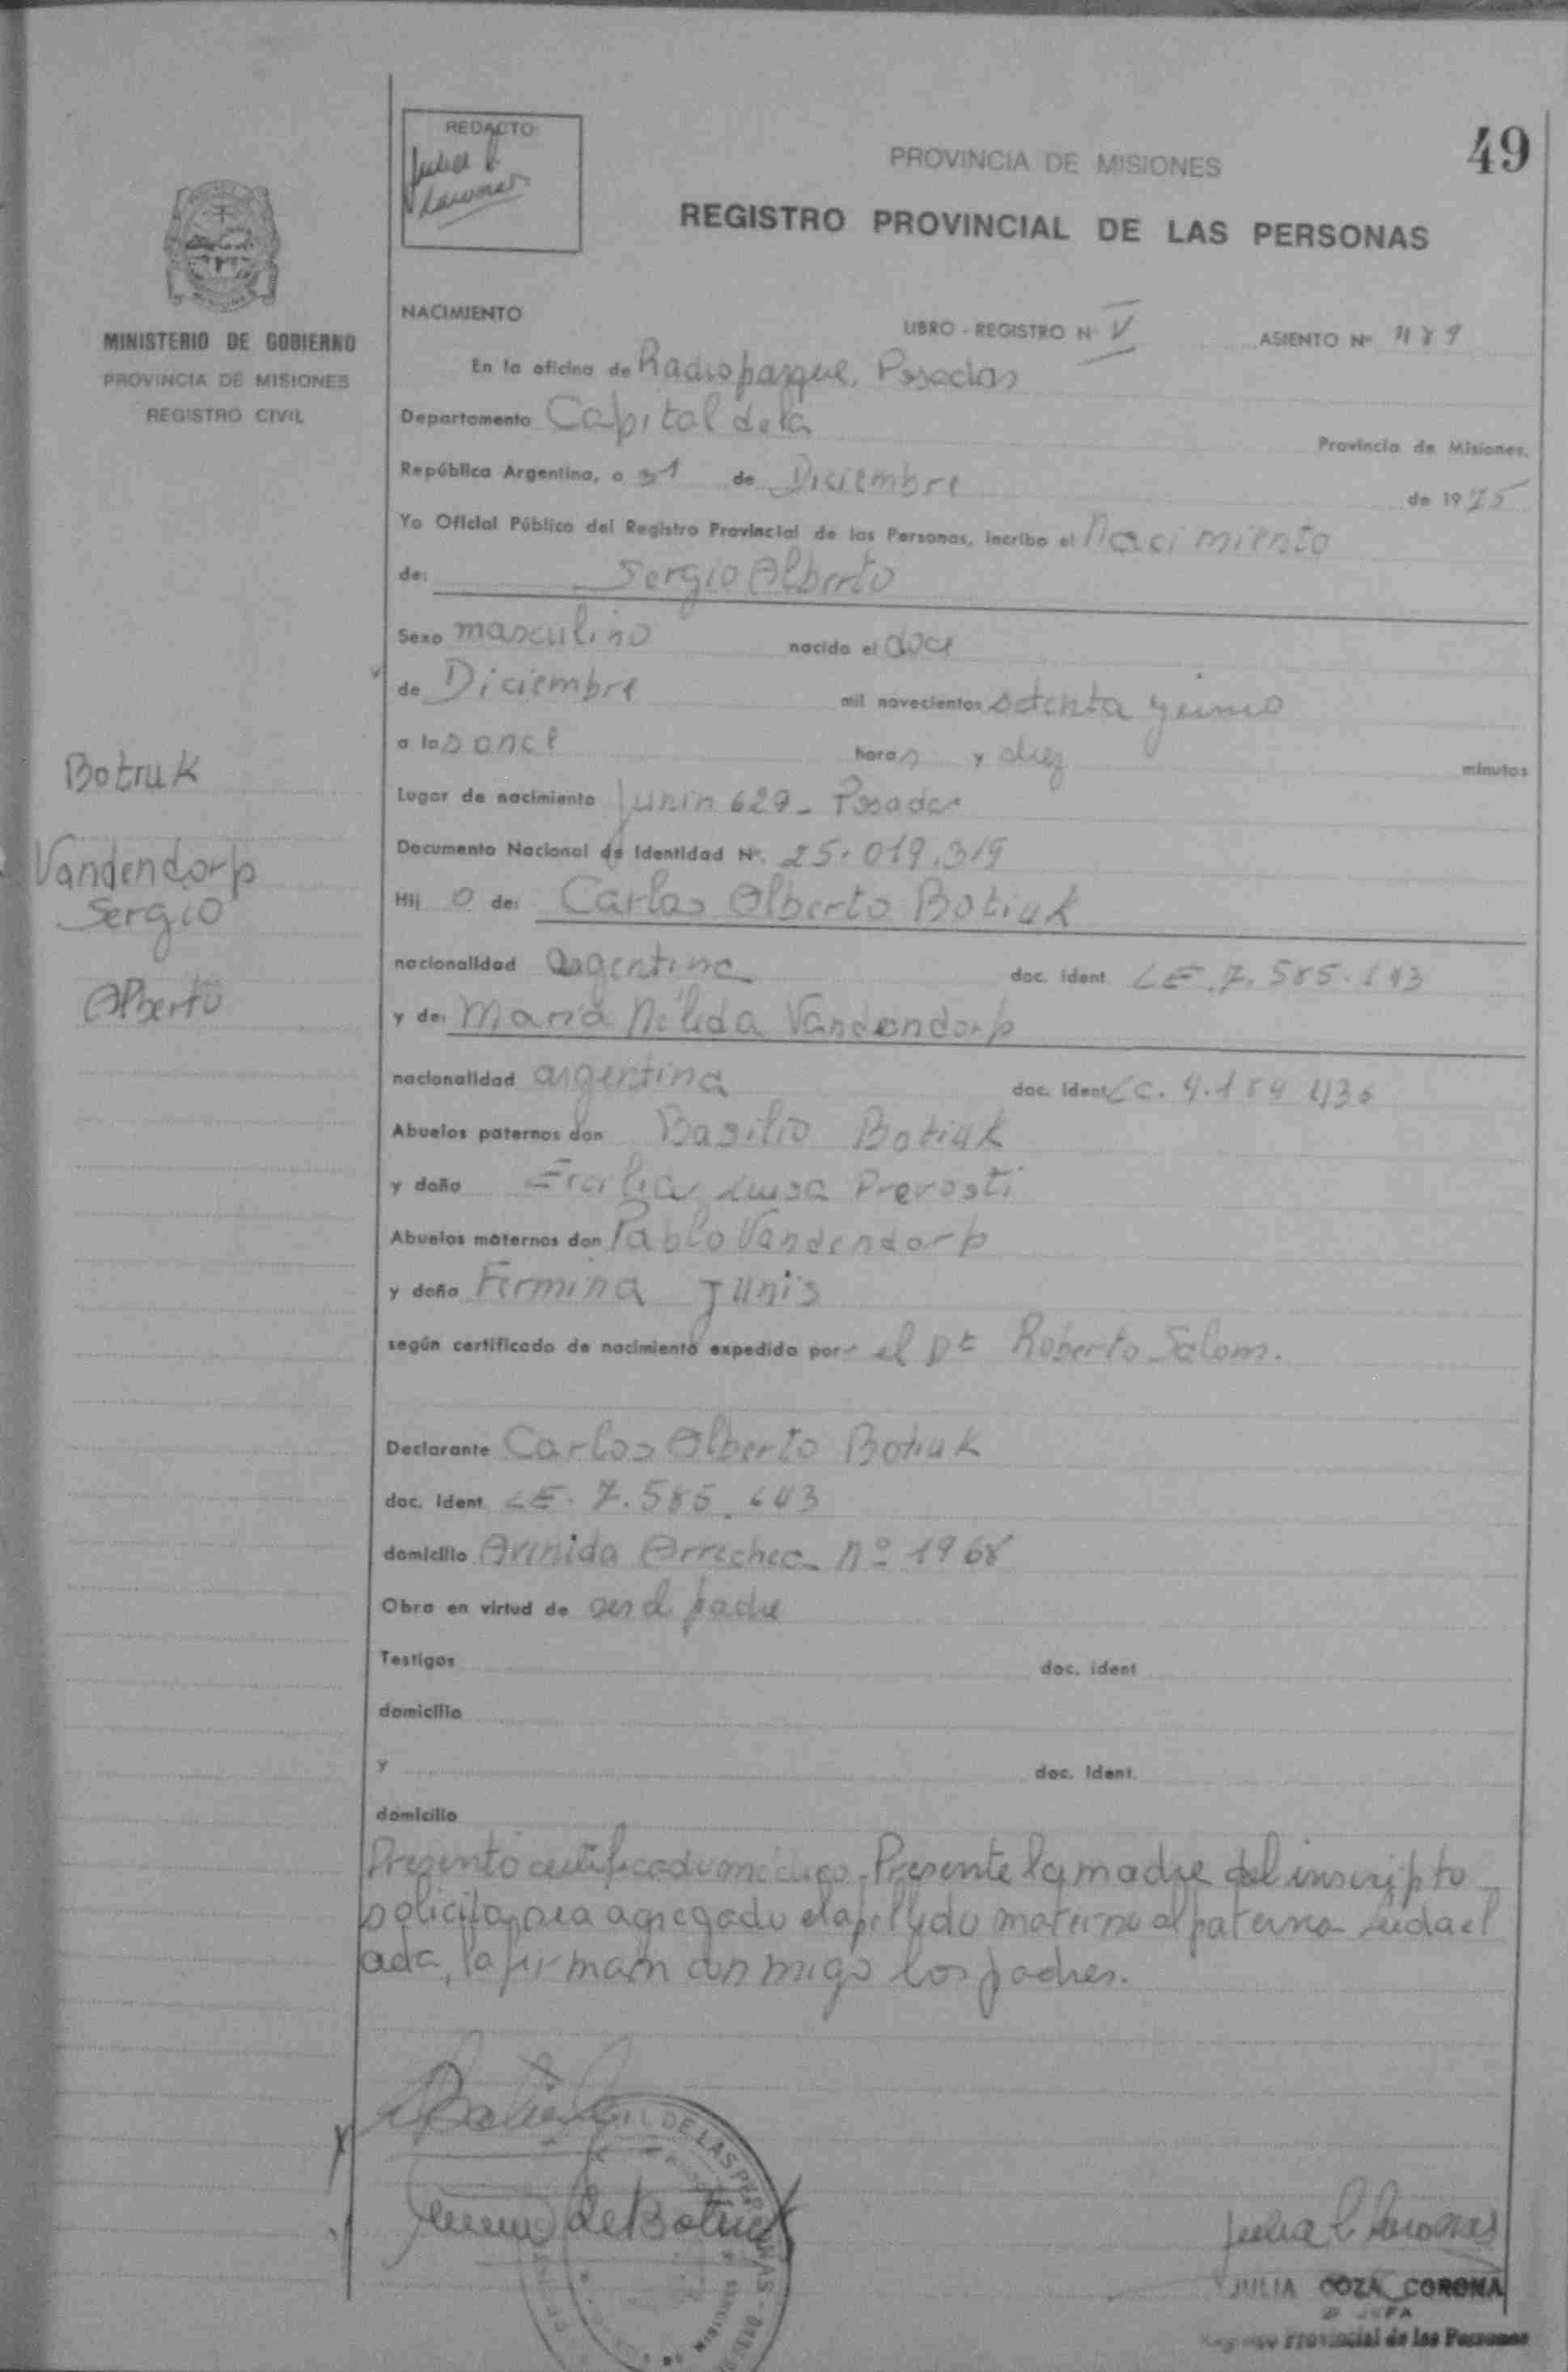 REDACTO:
49
PROVINCIA DE MISIONES
REGISTRO PROVINCIAL DE LAS PERSONAS
MINISTERIO DE GOBIERNO
PROVINCIA DE MISIONES
REGISTRO CIVIL
NACIMIENTO
LIBRO - REGISTRO Nº V ASIENTO Nº
En la oficina de Radioparque, Posadas
Departamento Capital de la Provincia de Misiones.
República Argentina, a 31 de Diciembre de 1975
Yo Oficial Público del Registro Provincial de las Personas, incribo el Nacimiento
de: Sergio Alberto
Sexo masculino nacido el doce
de Diciembre mil novecientos setenta y cinco
a las once horas y diez minutos
Lugar de nacimiento Junin 629 - Posadas
Documento Nacional de Identidad Nº. 25.019.319
Hij o de: Carlos Alberto Botiuk
nacionalidad argentina doc. ident. LE. 7.585.643
y de: María Nélida Vandendorp
nacionalidad argentina doc. ident LC. 4.184
Abuelos paternos don Basilio Botiuk
y doña Ercilia Luisa Prevosti
Abuelos maternos don Pablo Vandendorp
y doña Fermina Junis
según certificado de nacimiento expedido por el Dr Roberto Salom.
Declarante Carlos Alberto Botiuk
doc. ident. LE. 7.585.643
domicilio Avenida Arrechea nº 1968
Obra en virtud de ser el padre
Testigos doc. ident
domicilio
y doc. ident.
domicilio
Presentó certificado médico. Presente la madre del inscripto
solicita sea agregado el apellido materno al paterno Leida el
acta, la firman conmigo los padres.
Botiuk
Vandendorp
Sergio
Alberto
de Botiuk
JULIA COZA CORONA
JEFA
Registro Provincial de las Personas